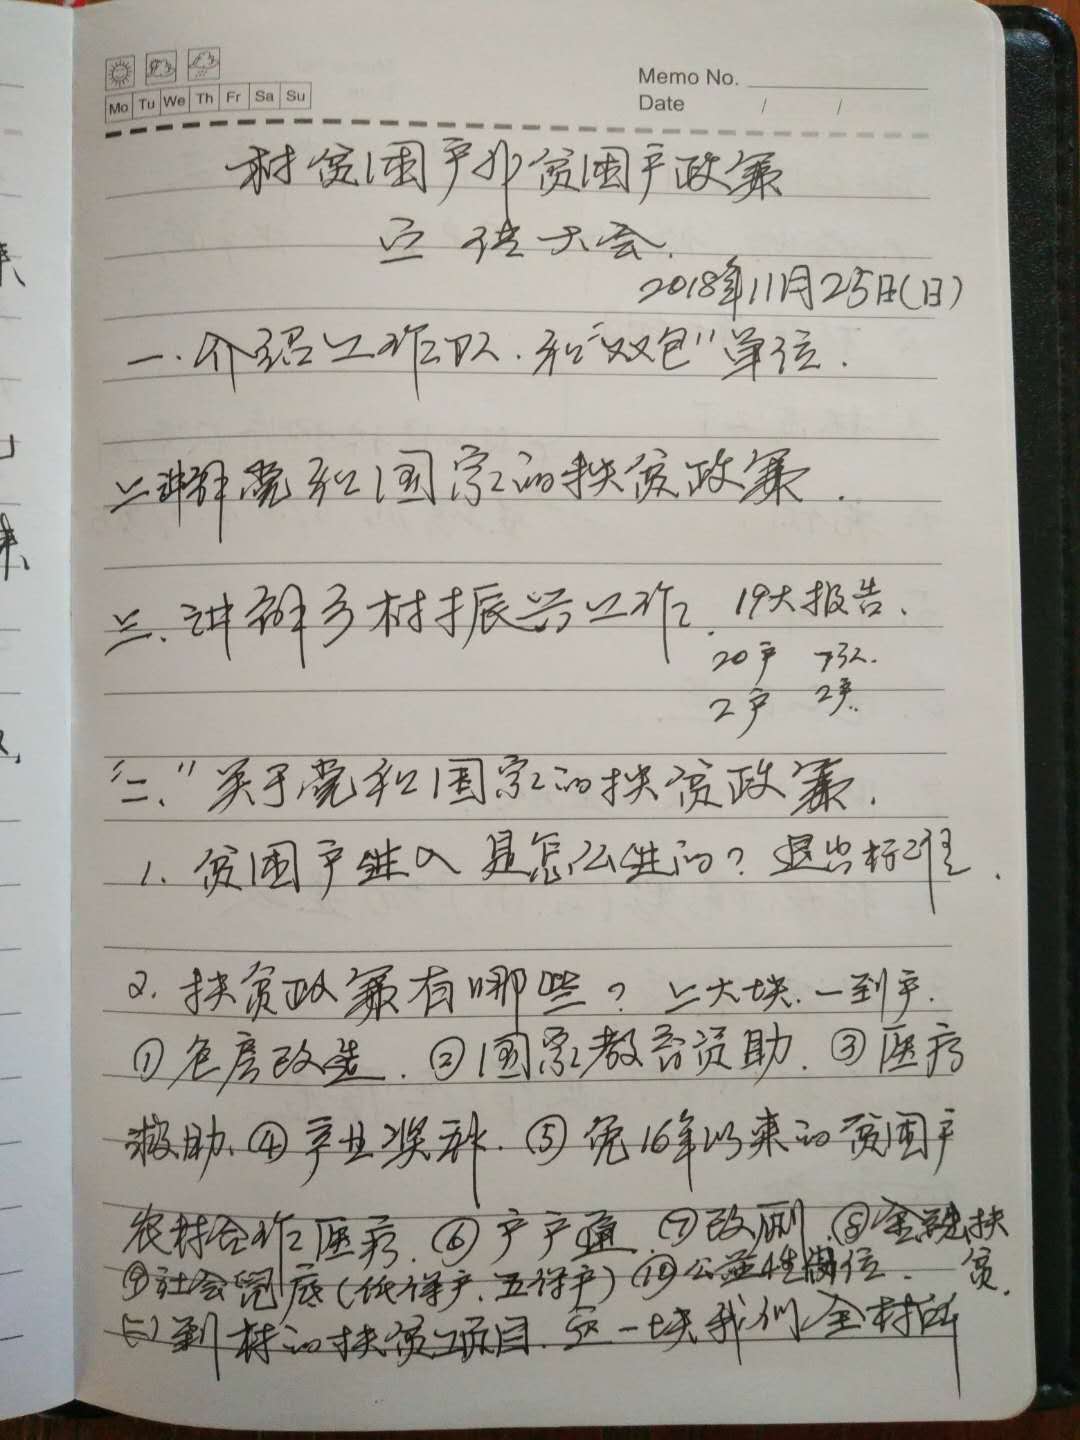 Memo No.
Mo Tu We Th Fr Sa Su
Date / /
村贫困户非贫困户政策
宣传大会.
2018年11月25日(日)
一.介绍工作队.和"双包"单位.
二讲解党和国家的扶贫政策.
三.讲解乡村振兴工作. 19大报告.
20户
2户 2户.
"二."关于党和国家的扶贫政策.
1.贫困户进入是怎么进的?退出标准.
2.扶贫政策有哪些?二大块.一到户.
①危房改造.②国家教育资助.③医疗
救助.④产业奖补.⑤免16年以来的贫困户
农村合作医疗.⑥户户通.⑦改厕.⑧金融扶
贫.
⑨社会兜底(低保户.五保户)⑩公益性岗位.
(二)到村的扶贫项目.这一块我们全村所